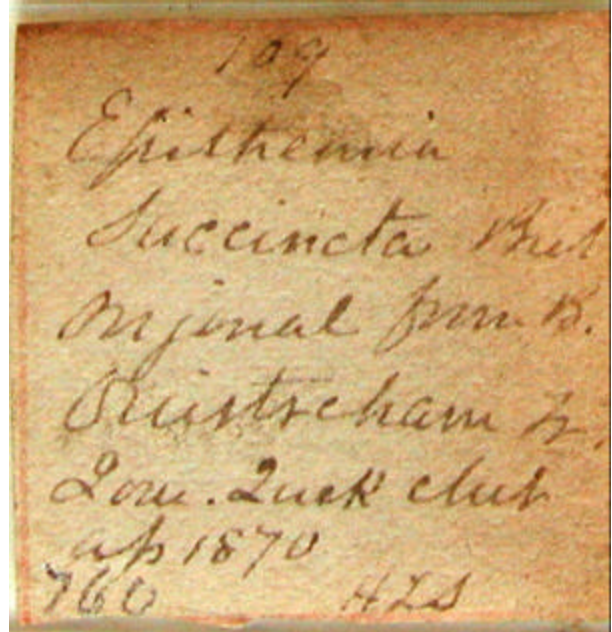 109
Epithemia
Succincta Breb
Original from B.
Ouistreham
Jour. Quek club
ap 1870
760 HLS